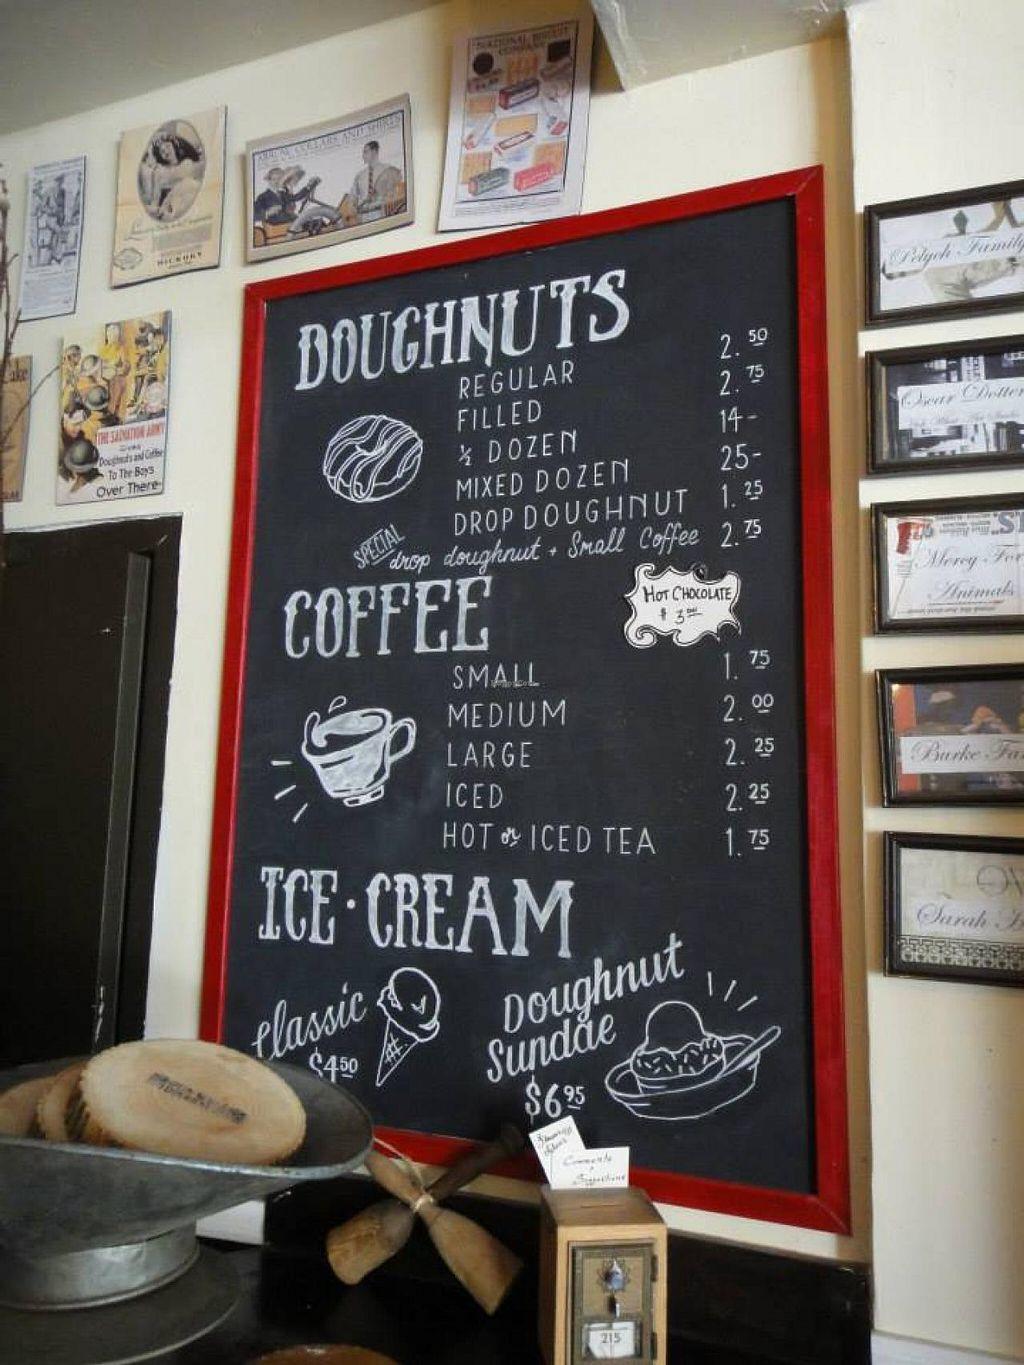 NATIONAL BISCUIT
COMPANY
ARROW COLLARS AND SHIRTS
HICKORY
THE SALVATION ARMY
Doughnuts and Coffee
To The Boys
Over There
DOUGHNUTS
REGULAR 2.50
FILLED 2.75
½ DOZEN 14-
MIXED DOZEN 25-
DROP DOUGHNUT 1.25
SPECIAL drop doughnut + Small Coffee 2.75
COFFEE
HOT CHOCOLATE
$3.00
SMALL 1.75
MEDIUM 2.00
LARGE 2.25
ICED 2.25
HOT or ICED TEA 1.75
ICE·CREAM
Classic
$4.50
Doughnut
Sundae
$6.95
Comments
+
Suggestions
215
Pelych Family
Oscar Dotter
Mercy For
Animals
Burke Fa
Sarah